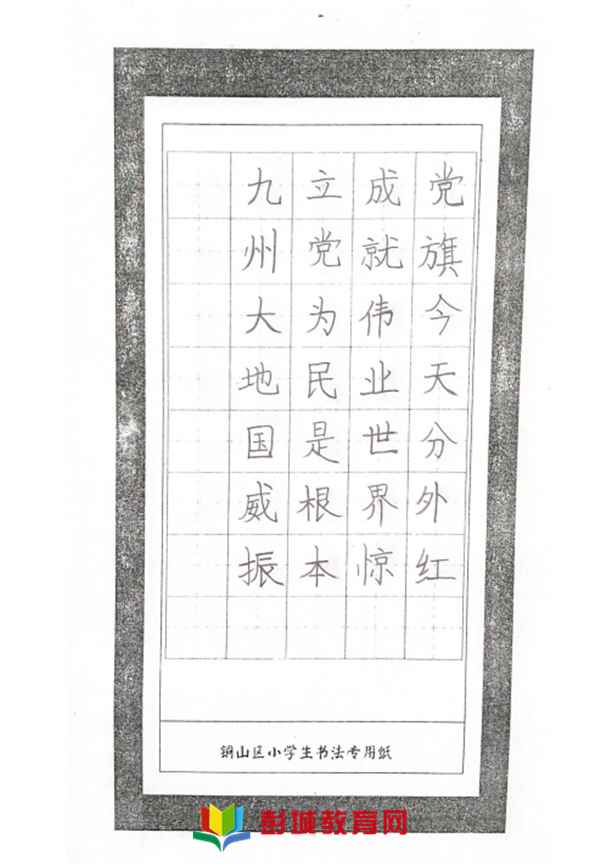 党旗今天分外红
成就伟业世界惊
立党为民是根本
九州大地国威振
铜山区小学生书法专用纸
彭城教育网